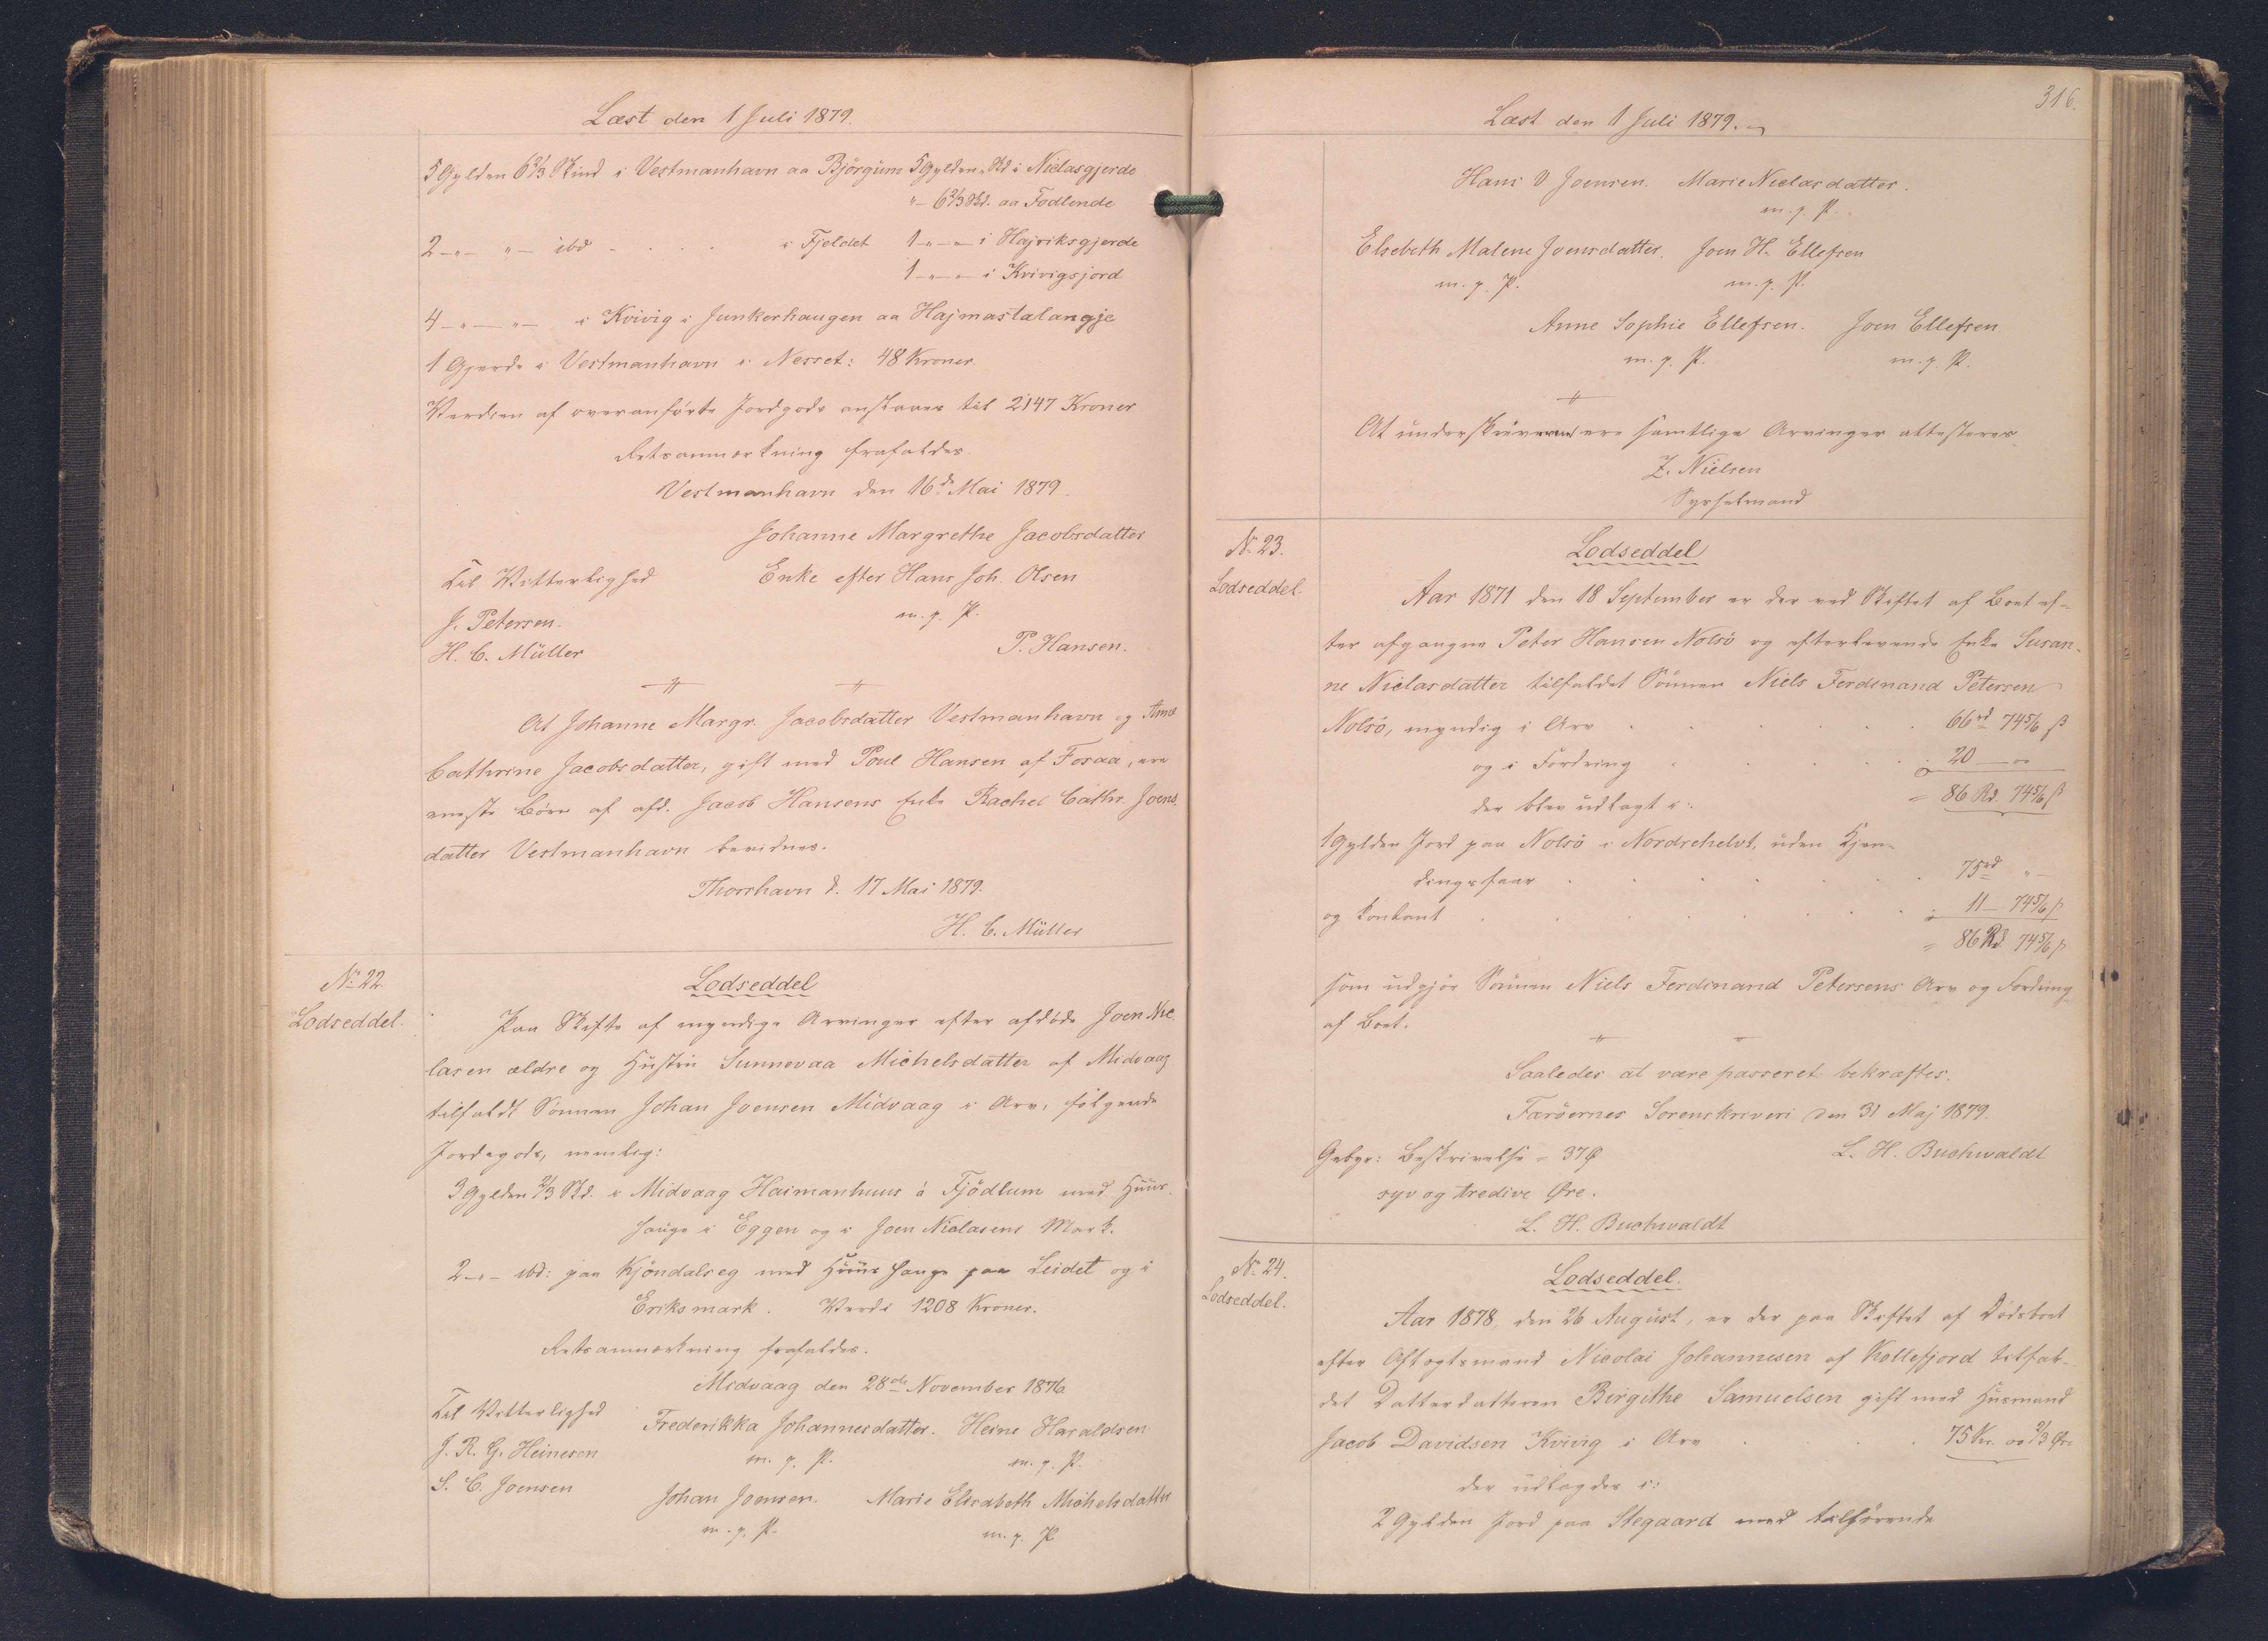 Læst den 1 Juli 1879.
5 Gylden 6 2/3 Skind i Vestmanhavn aa Björgum 5 Gylden " Skd i Niclasgjerde
" — 6 2/3 Skd. aa Fodlende
2 —"— "— ibd - . . . i Fjeldet 1 —"— "— i Hajriksgjerde
1 —"— "— i Kvivigsjord
4 —"— "— i Kvivig i Junkerhaugen aa Hajmastalangje
1 Gjerde i Vestmanhavn i Nesset: 48 Kroner.
Værdien af overanførte Jordgods ansættes til 2147 Kroner
Retsanmærkning frafaldes.
Vestmanhavn den 16de Mai 1879.
Johanne Margrethe Jacobsdatter
Til Vitterlighed Enke efter Hans Joh. Olsen
J. Petersen. m. f. P.
H. C. Müller P. Hansen.
At Johanne Margr. Jacobsdatter Vestmanhavn og Anne
Cathrine Jacobsdatter, gift med Poul Hansen af Fosaa, ere
eneste Børn af afd. Jacob Hansens Enke Rachel Cathr. Joens
datter Vestmanhavn bevidnes.
Thorshavn d. 17 Mai 1879.
H. C. Müller
No 22.
Lodseddel.
Lodseddel
Paa Skifte af myndige Arvinger efter afdøde Joen Nic
lasen ældre og Hustru Sunnevaa Michelsdatter af Midvaag
tilfaldt Sönnen Johan Joensen Midvaag i Arv, følgende
Jordegods, nemlig:
3 Gylden 2/3 Skd. i Midvaag Haimanhuus á Fjödlum med Huus-
hauge i Eggen og i Joen Niclasens Mark.
2 —"— ibd: paa Kjöndalseg med Huus hauge paa Leidet og i
Eriksmark. Værdi 1208 Kroner.
Retsanmærkning frafaldes.
Midvaag den 28de November 1876.
Til Vitterlighed Frederikka Johannesdatter. Heine Haraldsen
J. R. G. Heinesen m. f. P. m. f. P.
S. C. Joensen Johan Joensen. Marie Elisabeth Michelsdatter
m. f. P. m. f. P.
316.
Læst den 1 Juli 1879.
Hans V Joensen. Marie Niclasdatter.
m. f. P.
Elsebeth Malene Joensdatter. Joen H. Ellefsen
m. f. P. m. f. P.
Anne Sophie Ellefsen. Joen Ellefsen
m. f. P. m. f. P.
At underskriverne ere samtlige Arvinger attesteres
Z. Nielsen
Sysselmand
No 23.
Lodseddel.
Lodseddel
Aar 1871 den 18 September er der ved Skiftet af Boet ef-
ter afgangne Peter Hansen Nolsö og efterlevende Enke Susan-
ne Niclasdatter tilfaldet Sönnen Niels Ferdinand Petersen
Nolsö, myndig i Arv . . . 66 rd 74 5/6 ß
og i Fordring . . . 20 — "
der blev udlagt i: = 86 Rd. 74 5/6 ß
1 Gylden Jord paa Nolsö i Nordrehelvt, uden Kjen-
dingsfaar . . . 75 rd "—
og kontant . . . 11 — 74 5/6 ß
= 86 Rd 74 5/6 ß
som udgjør Sönnen Niels Ferdinand Petersens Arv og Fordring
af Boet.
Saaledes at være passeret bekræftes.
Færöernes Sorenskriveri den 31 Maj 1879.
Gebyr: Beskrivelse = 37 Ø L. H. Buchwaldt
syv og tredive Øre.
L. H. Buchwaldt
No 24.
Lodseddel.
Lodseddel.
Aar 1878, den 26 August, er der paa Skiftet af Dødsboet
efter Aftægtsmand Nicolai Johannesen af Kollefjord tilfal-
det Datterdatteren Birgithe Samuelsen gift med Huusmand
Jacob Davidsen Kvivig i Arv . . . 75 Kr. 00 2/3 Øre
der udlagdes i:
2 Gylden Jord paa Stegaard med tilhørende